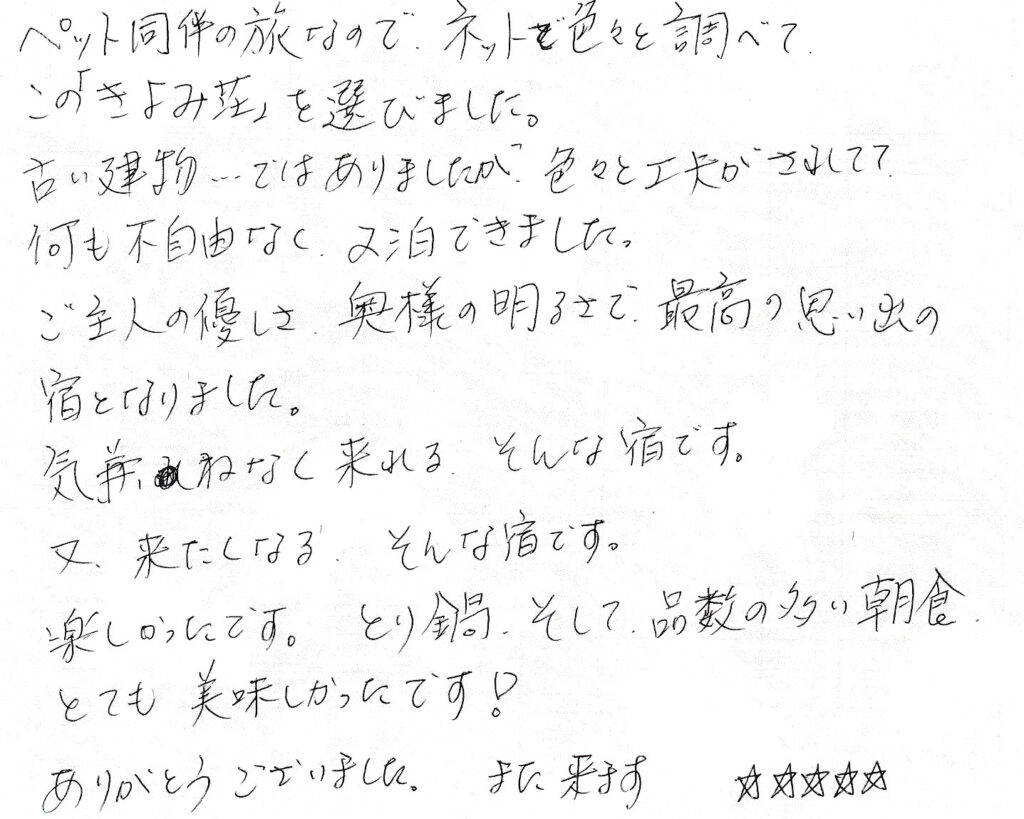 ペット同伴の旅なので、ネットで色々と調べて、
この「きよみ荘」を選びました。
古い建物…ではありましたが、色々と工夫がされてて、
何も不自由なく、2泊できました。
ご主人の優しさ、奥様の明るさで、最高の思い出の
宿となりました。
気兼ねなく来れる、そんな宿です。
又、来たくなる、そんな宿です。
楽しかったです。 とり鍋、そして、品数の多い朝食、
とても美味しかったです!
ありがとうございました。 また来ます ☆☆☆☆☆